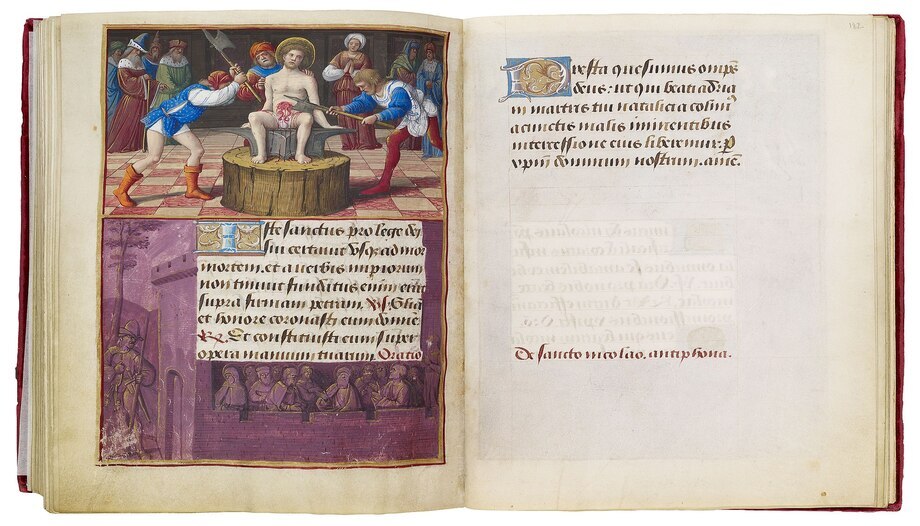 Iste sanctus pro lege dei
sui certauit Vsq; ad mor
mortem. et a uerbis impiorum
non timuit fundatus enim erat
supra firmam petram. V. Glia
et honore coronasti eum domine.
R. Et constituisti eum super
opera manuum tuarum. Oratio
192
Presta quesumus omps
deus: ut qui beati adria
ni martiris tui natalicia colimus
a cunctis malis iminentibus
intercessione eius liberemur. P
xpm dominum nostrum. ame.
De sancto nicolao. antiphona.